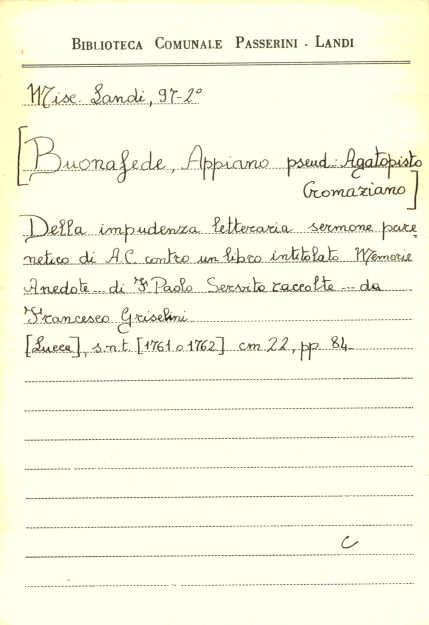 BIBLIOTECA COMUNALE PASSERINI - LANDI
Misc. Landi, 97-2º
[Buonafede, Appiano pseud: Agatopisto
Cromaziano]
Della impudenza letteraria sermone pare=
netico di A.C contro un libro intitolato Memorie
Anedote ... di F Paolo Servita raccolte ... da
Francesco Griselini
[Lucca], s.n.t. [1761 o 1762] cm 22, pp. 84
C